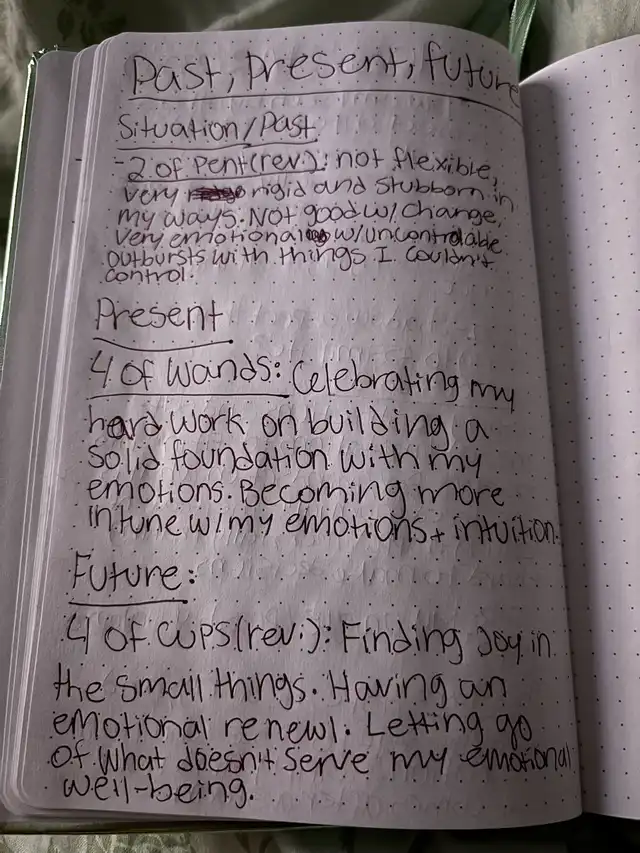 Past, Present, future
Situation/Past
-2 of Pent(rev.): not flexible,
very rigid and stubborn in
my ways. Not good w/ change,
very emotional w/uncontrolable
outbursts with things I couldn't
control.
Present
4 of Wands: Celebrating my
hard work on building a
solid foundation with my
emotions. Becoming more
intune w/my emotions + intuition.
Future:
4 of cups(rev.): Finding Joy in
the small things. Having an
emotional renewl. Letting go
of what doesn't serve my emotional
well-being.